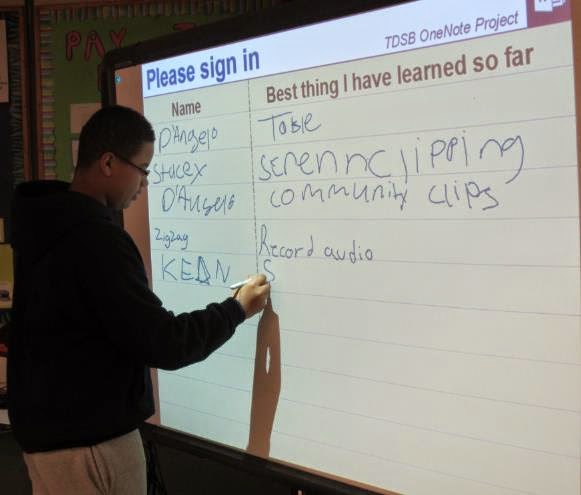 PAY
TDSB OneNote Project
Please sign in
Name Best thing I have learned so far
D'Angelo Table
Stacey screennclipping
D'Angelo community clips
ZigZag Record audio
KEAN S